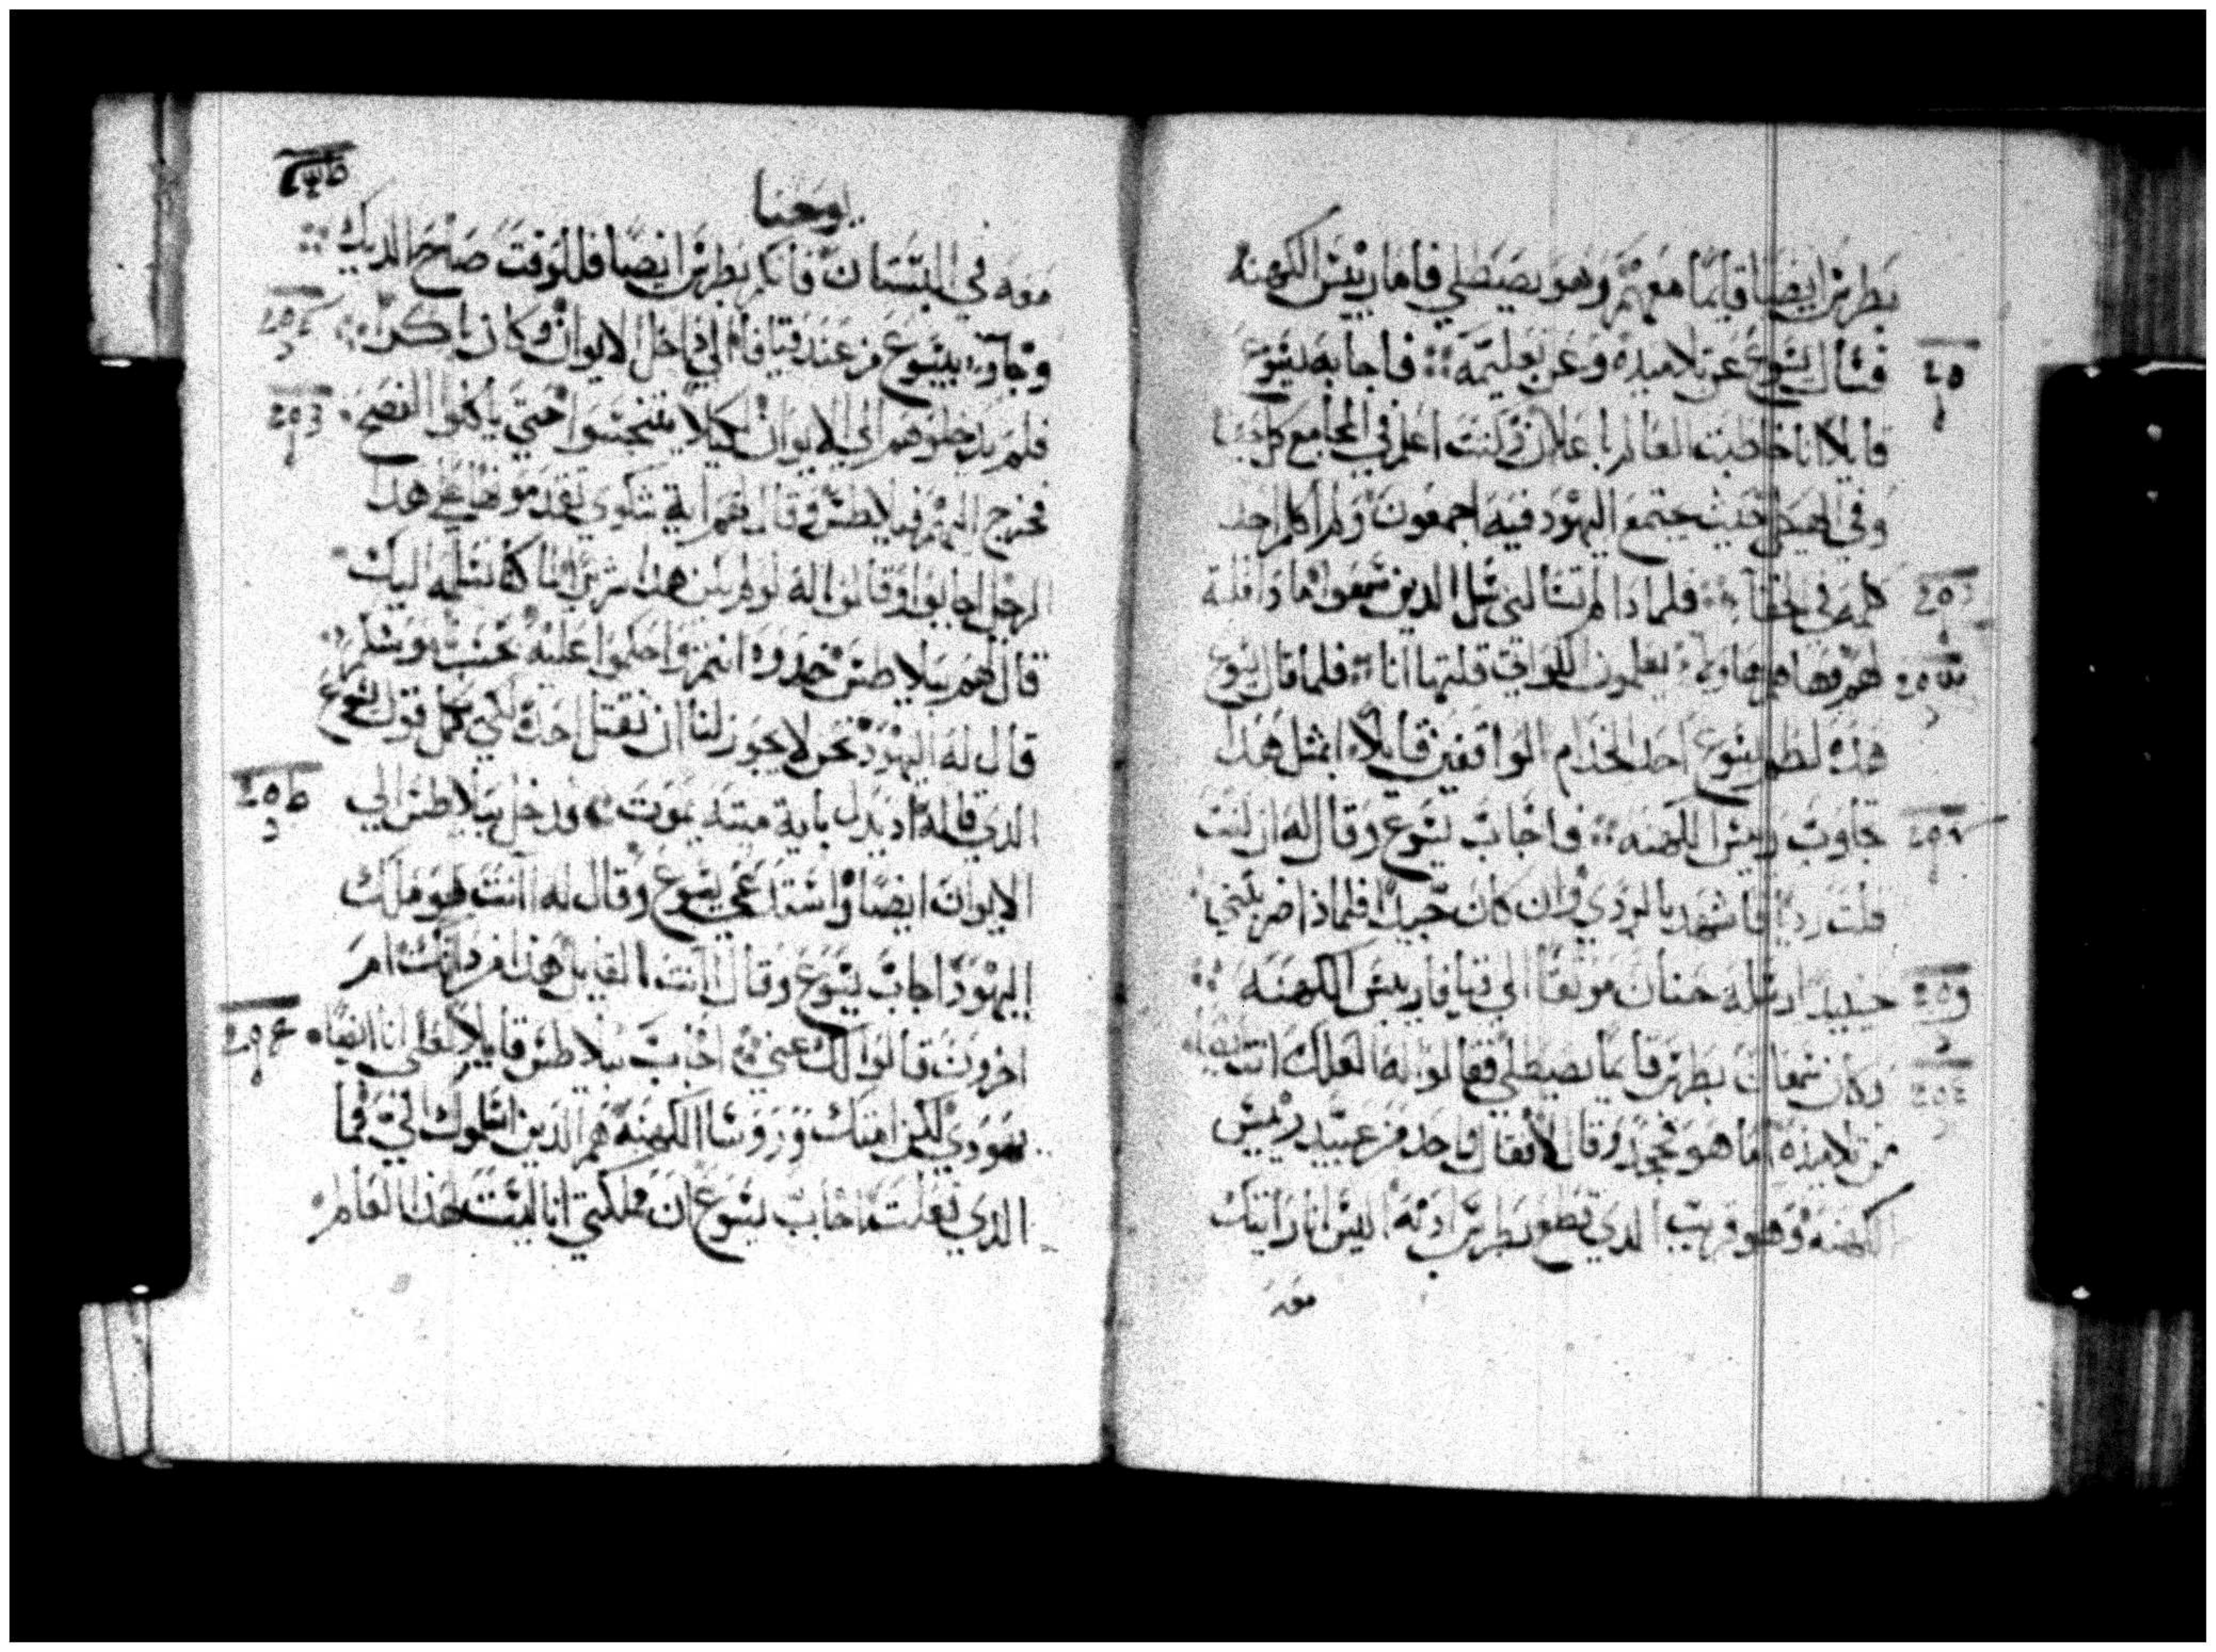 بطرس ايضا قايما معهم وهو يصيطلي فاما رييس الكهنه
فسال يسوع عن تلاميذه وعن تعليمه فاجابه يسوع
قايلا انا خاطبت العالم باعلان وكنت اعلم في المجامع كل حين
وفي الهيكل حيث يجتمع اليهود فيه اجمعون ولم اكلم احد
كلمه في خفا فلماذا لم تسالني سل الدين سمعوا ما دا قلت
لهم فها هم هاولاء يعلمون الاواتي قلتها انا فلما قال يسوع
هذه لطم يسوع احد الخدام الواقفين قايلا ابمثل هذا
تجاوب رييس الكهنه فاجاب يسوع وقال له ان كنت
قلت رديا فاشهد بالردي وان كان جيدا فلماذا ضربتني
حينيد ارسله حنان موثقا الي قيافا رييس الكهنه
وكان سمعان بطرس قايما يصيطلي فقالوا له لعلك انت ايضا
من تلاميذه اما هو فجحد وقال لا فقال واحد من عبيد رييس
الكهنه وهو قريب الدي قطع بطرس ادنه اليس انا رايتك
معه
يوحنا
معه في البستان فانكر بطرس ايضا فللوقت صاح الديك
وجاوا بيسوع من عند قيافا الي داخل الايوان وكان باكرا
فلم يدخلوا هم الي الايوان لكيلا يتنجسوا حتي ياكلوا الفصح
فخرج اليهم فيلاطس وقال لهم اية شكوي تقدمونها علي هدا
الرجل اجابوا وقالوا له لو لم يكن هذا شريرا ما كنا نسلمه اليك
قال لهم بيلاطس خدوه انتم واحكموا عليه
قال له اليهود نحن لا يجوز لنا ان نقتل احد لكي يكمل قول يسوع
الدي قاله اد يدل باية ميته يموت فدخل بيلاطس الي
الايوان ايضا واستدعي يسوع وقال له انت هو ملك
اليهود اجاب يسوع وقال اانت القايل هذا من داتك ام
اخرون قالوا لك عني اجاب بيلاطس قايلا لعلي انا ايضا
يهودي لكن امتك وروسا الكهنه هم الدين اسلموك الي فما
الدي فعلت اجاب يسوع ان مملكتي انا ليست لهذا العالم